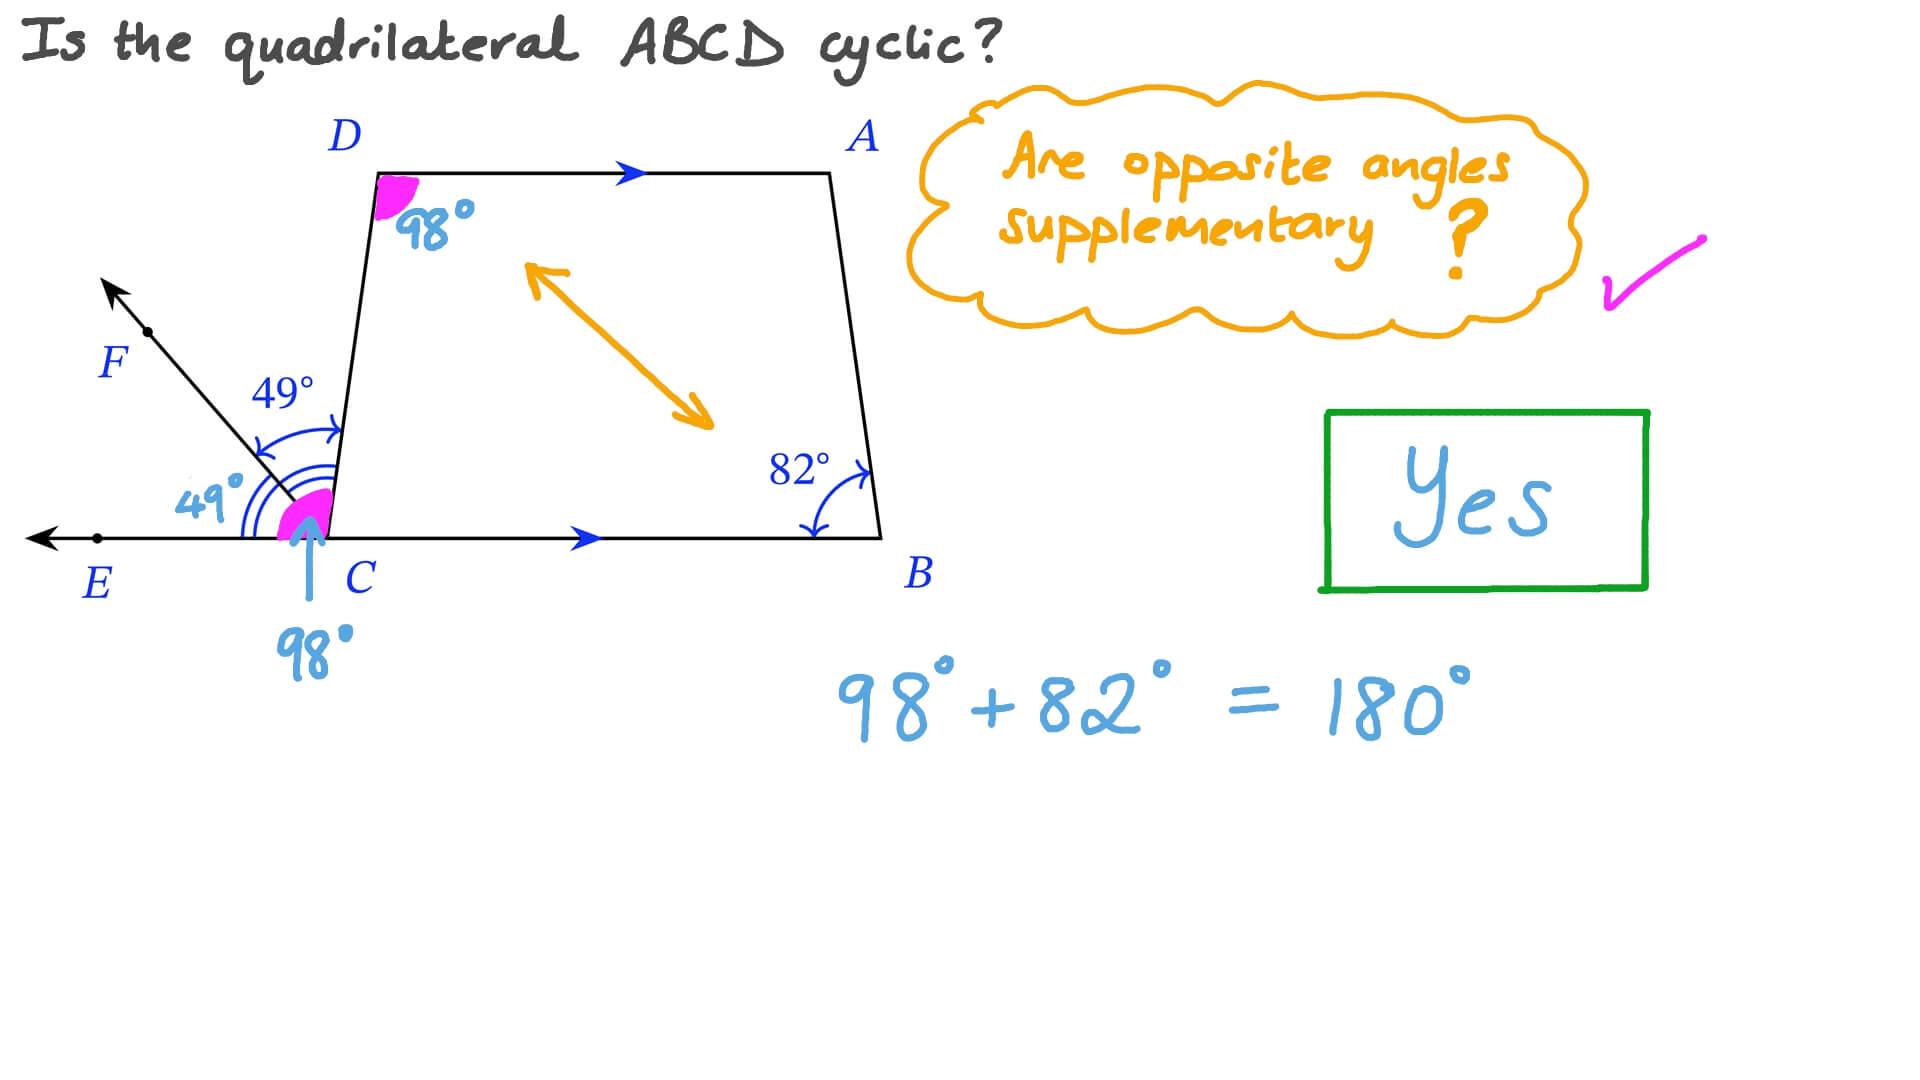 Is the quadrilateral ABCD cyclic?
D
A
Are opposite angles
supplementary ?
98°
F
49°
82°
49°
Yes
E
C
B
98°
98° + 82° = 180°